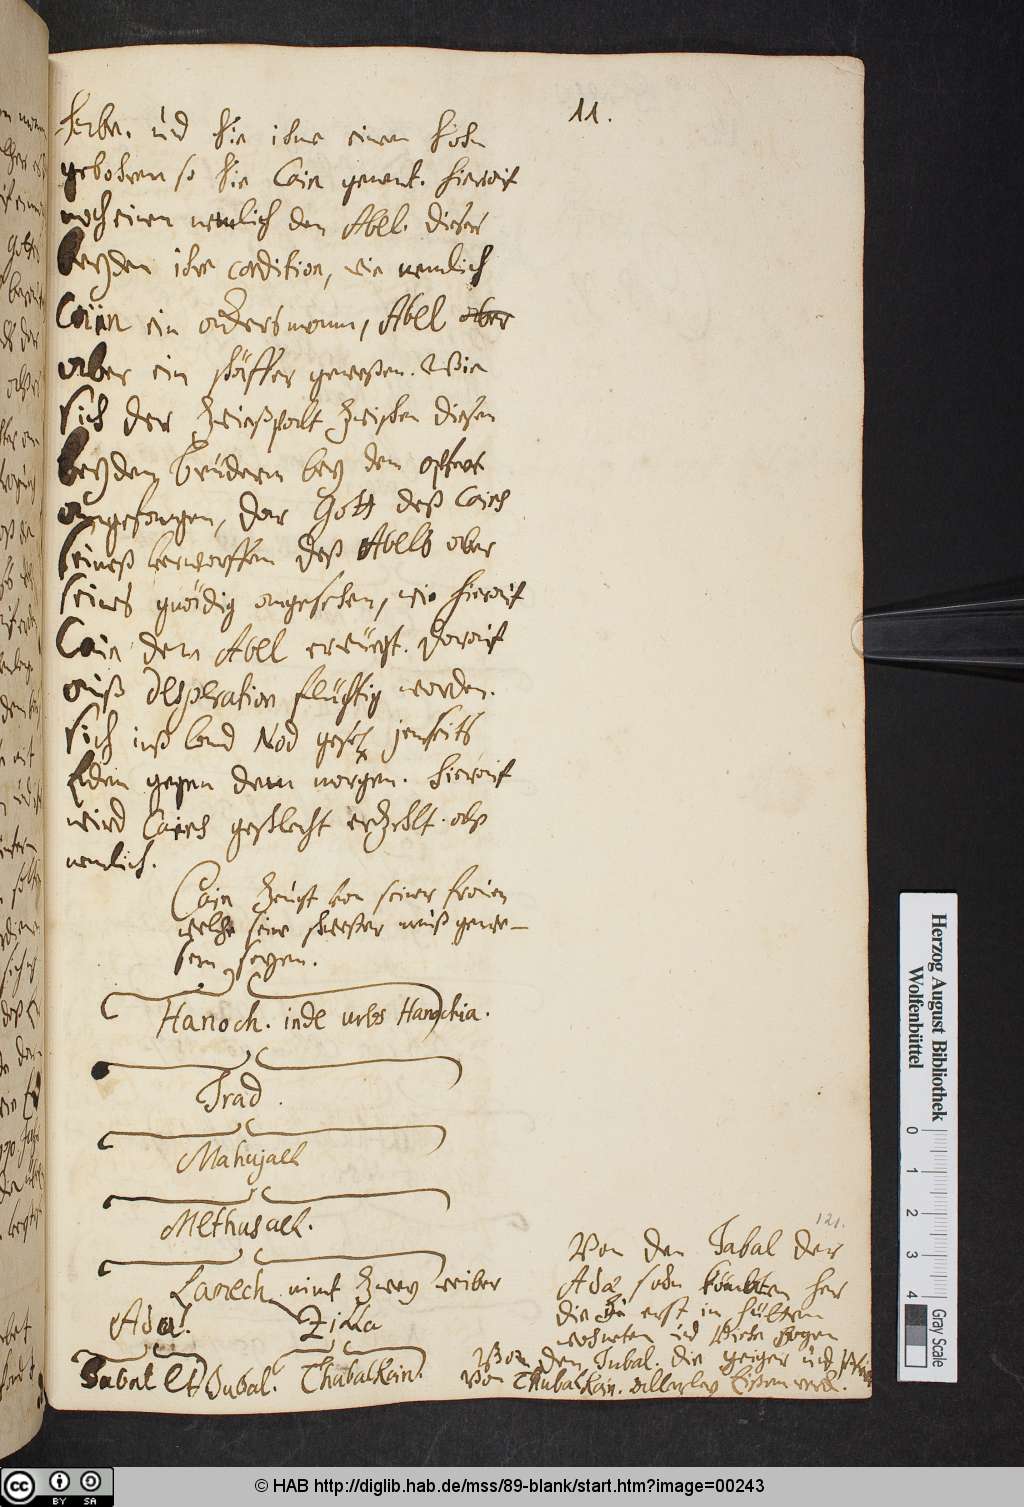 11.
und sie ihme einen sohn
gebohren so sie Cain genent. hierauf
noch einen nemlich den Abel. dieser
beyden ihre condition, wie nemlich
Cain ein ackersmann, Abel aber
aber ein schäffer geweßen. Wie
sich der Zwießpalt zwischen diesen
beyden brüdern bey dem opffer
angefangen, der Gott deß Cains
seines verworffen deß Abels aber
seines gnädig angesehen, wie hierauf
Cain den Abel erwürgt. darauf
auß desperation flüchtig worden.
sich inß land Nod gesetzt jenseits
Eden gegen dem morgen. hierauf
wird Cains geschlecht erzehlt. alß
nemlich.
Cain zeugt von seiner frauen
welche seine schwester muß gewe-
sen seyen.
Hanoch. inde urbs Hanochia.
Irad.
Mahujael
Methusael.
Lamech nimt zwey weiber
Ada. Zilla
Jabal et Jubal. Thubalkain.
121.
Von dem Jabal der
Adae sohn kombten her
die erst in hütten
wohneten und Viehe zogen
Von dem Jubal. die geiger und
Von Thubalkain. allerley Eißenwerk.
Herzog August Bibliothek
Wolfenbüttel
0 1 2 3 4
Gray Scale
© HAB http://diglib.hab.de/mss/89-blank/start.htm?image=00243
BY SA